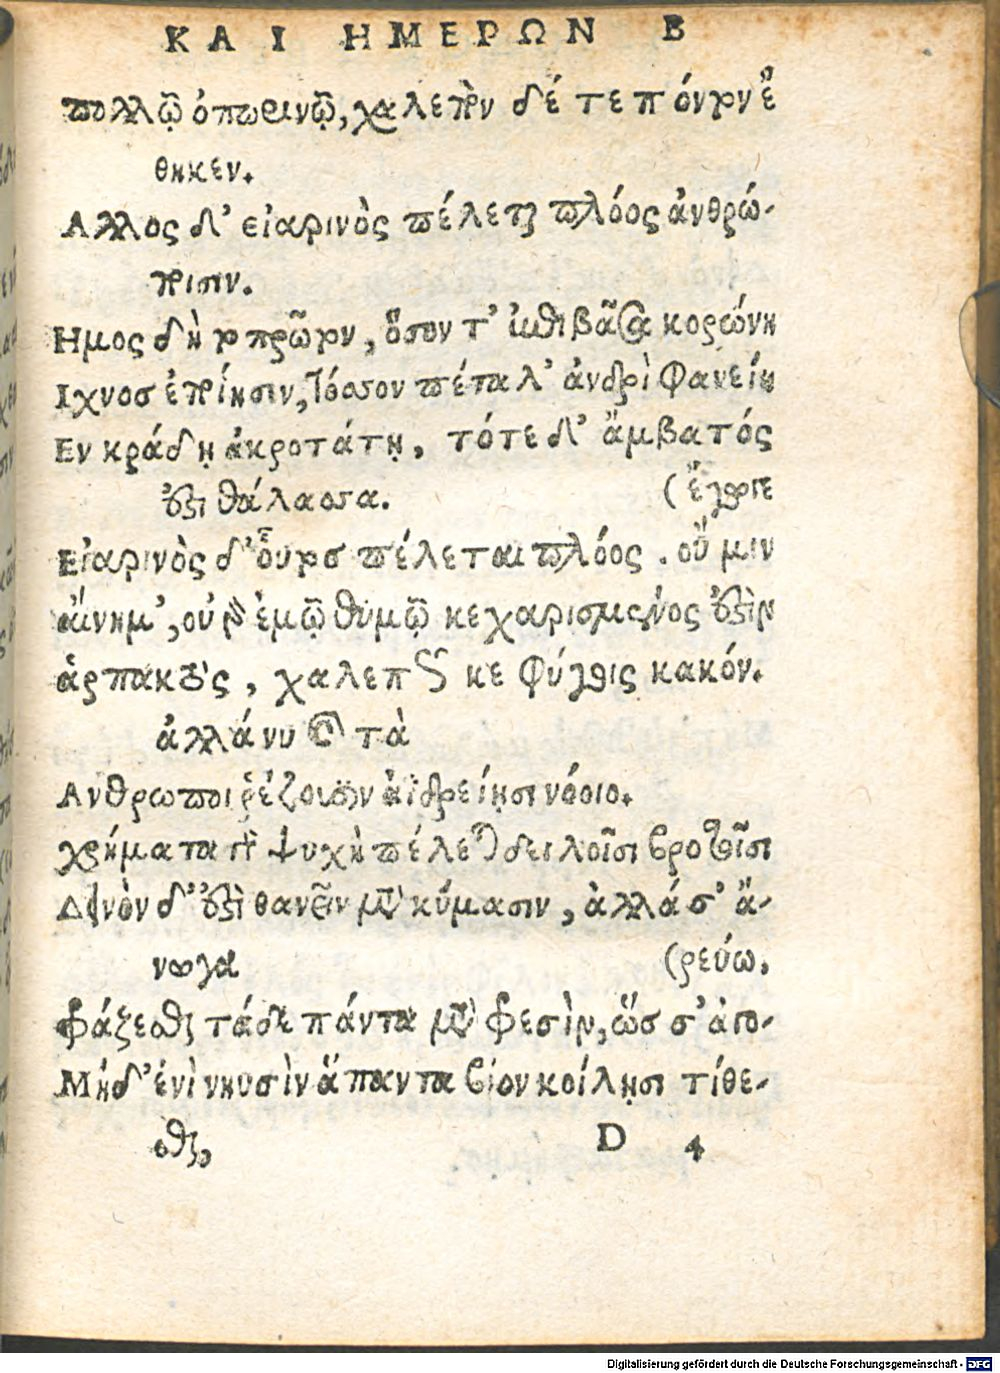 ΚΑΙ ΗΜΕΡΩΝ Β
πολλῷ ὀπωρινῷ, χαλεπὸν δέ τε πόντον ἔ
θηκεν.
Αλλος δ' εἰαρινὸς πέλεται πλόος ἀνθρώ-
ποισιν.
Ημος δὴ τοπρῶτον, ὅσον τ' ἐπιβᾶσα κορώνη
Ιχνοσ ἐποίησιν, τόσσον πέταλ' ἀνδρὶ φανείη
Εν κράδῃ ἀκροτάτῃ, τότε δ' ἄμβατός
ἐστι θάλασσα. (ἔγωγε
Εἰαρινὸς δ' οὗτοσ πέλεται πλόος. οὔ μιν
αἴνημ', οὐ γὰρ ἐμῷ θυμῷ κεχαρισμένος ἐστὶν
ἁρπακτὸς, χαλεπῶς κε φύγοις κακόν.
ἀλλά νυ καὶ τὰ
Ανθρωποι ῥέζουσιν ἀϊδρείῃσι νόοιο.
χρήματα γὰρ ψυχὴ πέλεται δειλοῖσι βροτοῖσι
Δεινὸν δ' ἐστὶ θανεῖν μετὰ κύμασιν, ἀλλά σ' ἄ-
νωγα (ρεύω.
φράζεσθαι τάδε πάντα μετὰ φρεσὶν, ὥσ σ' ἀγο-
Μηδ' ἐνὶ νηυσὶν ἅπαντα βίον κοίλῃσι τίθε-
σθαι,
D 4
Digitalisierung gefördert durch die Deutsche Forschungsgemeinschaft - DFG